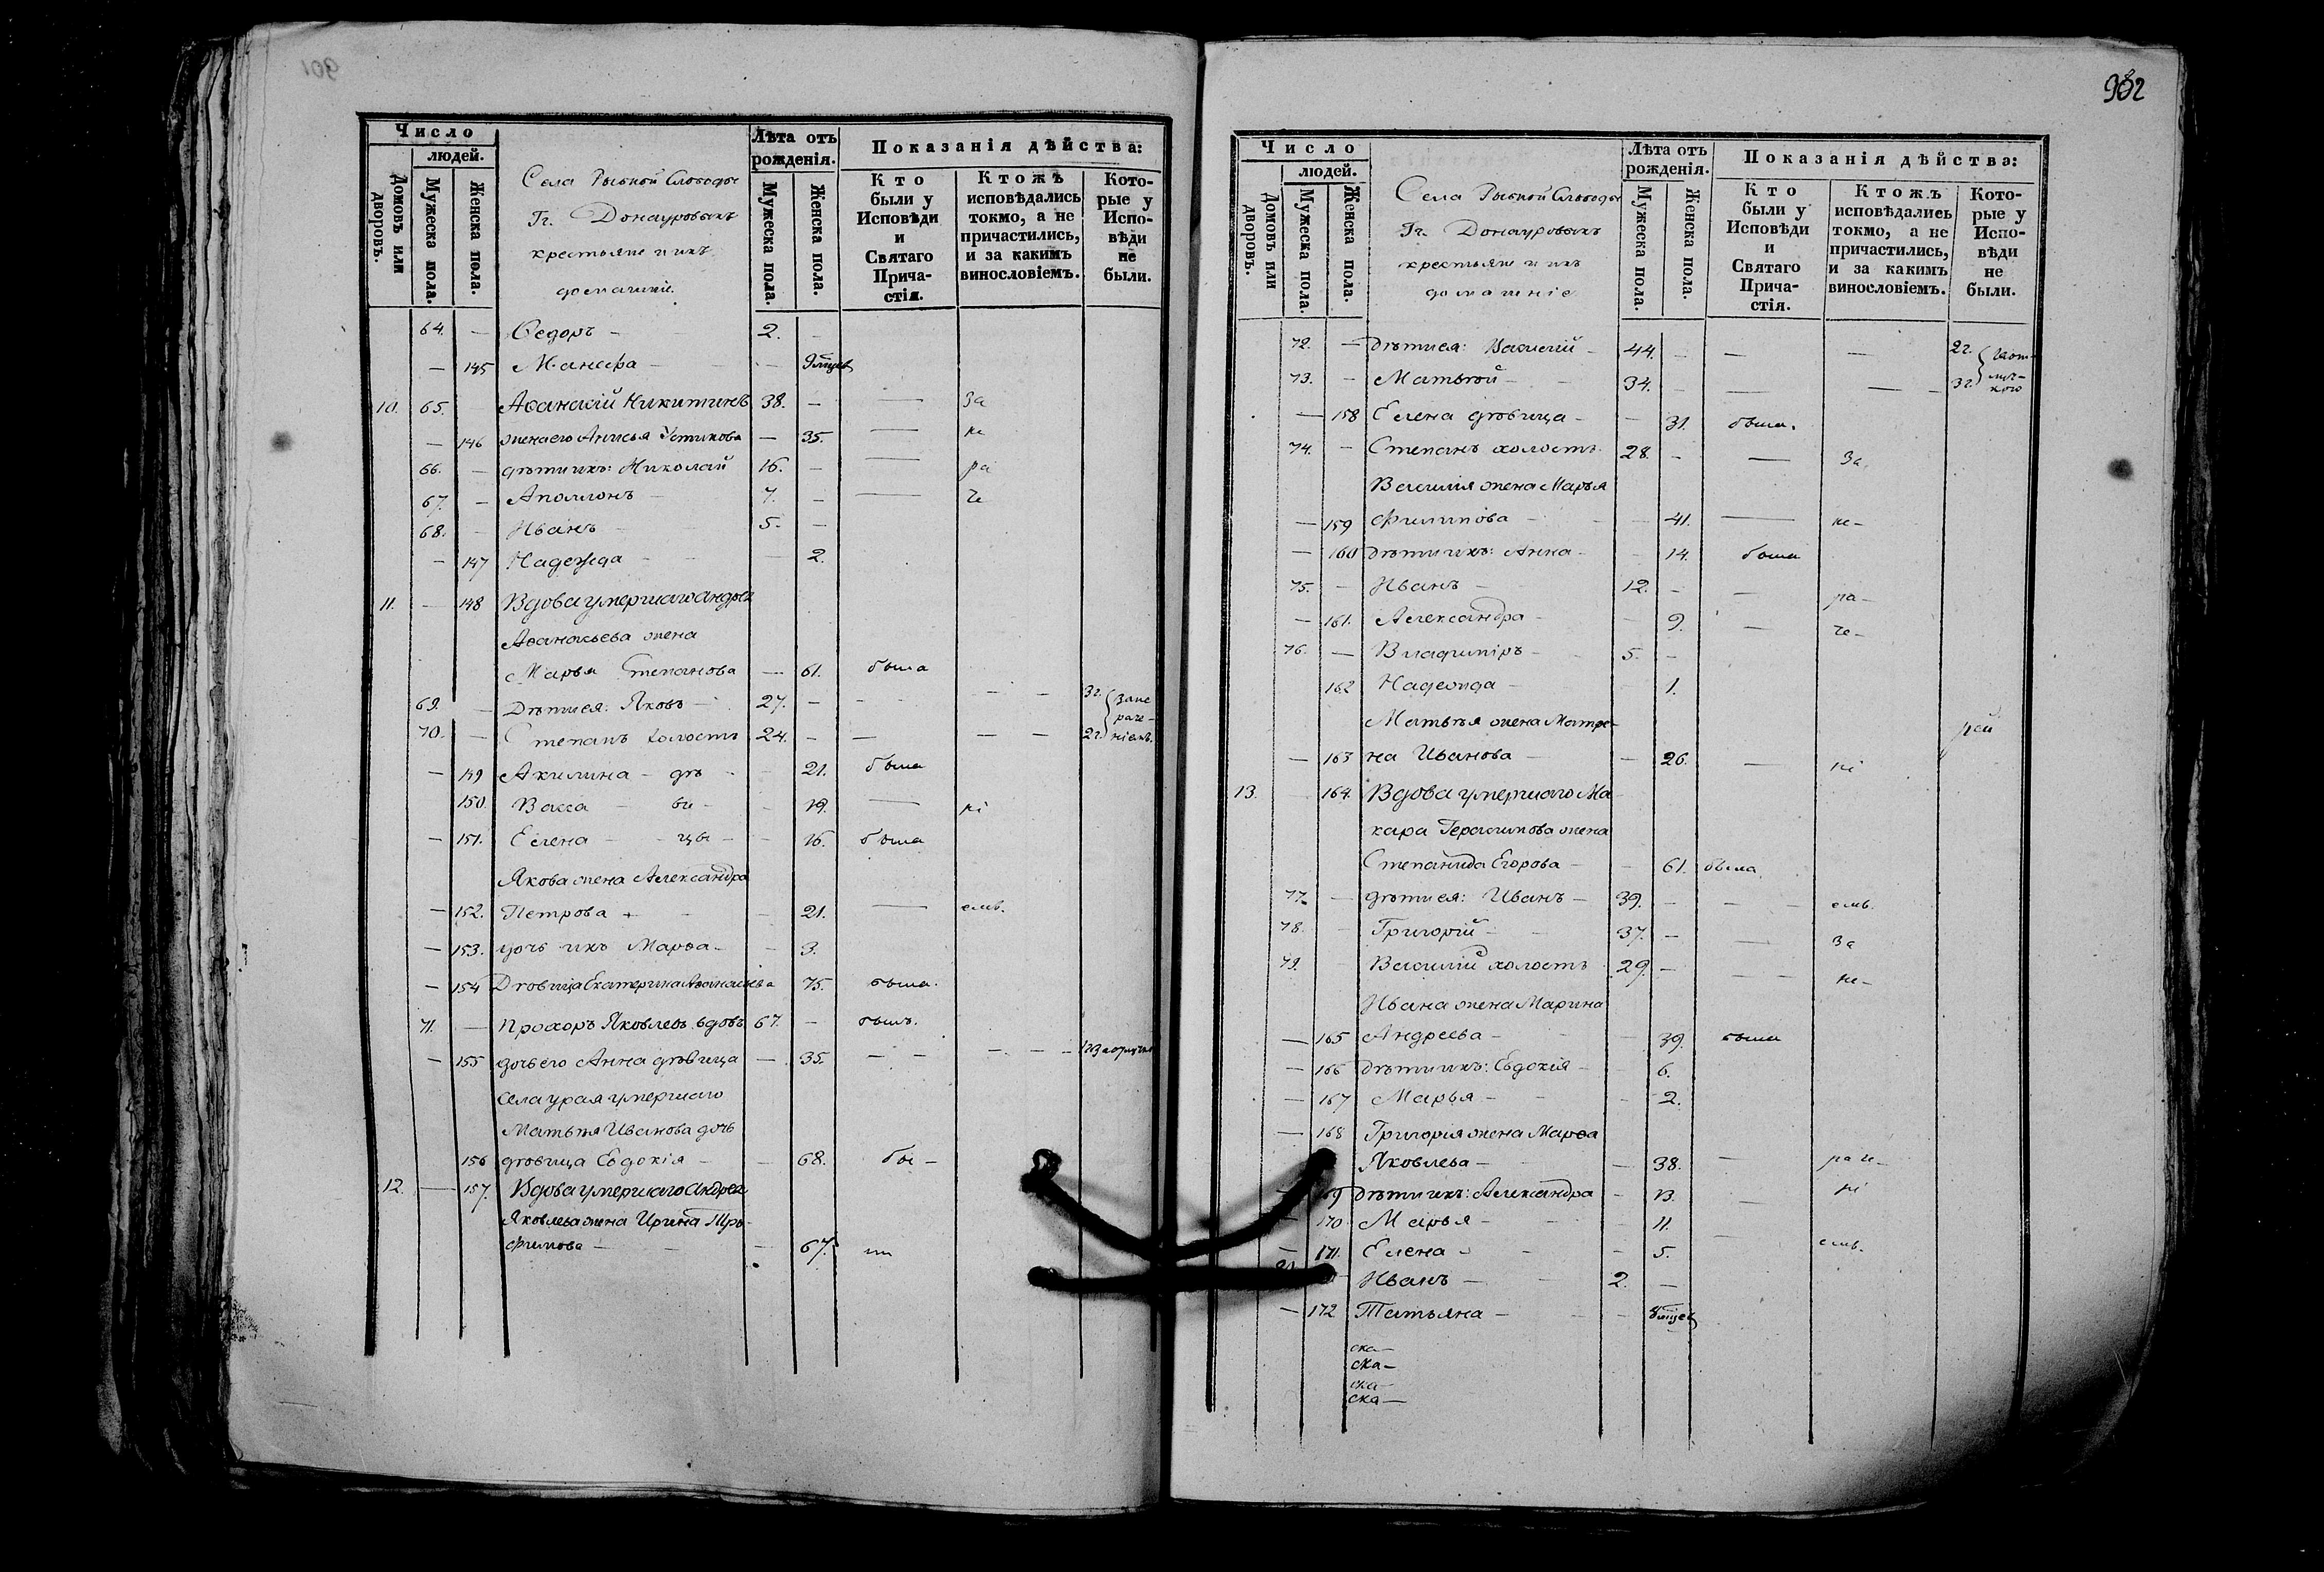 901
Число
людей.
Домовъ или дворовъ.
Мужеска пола.
Женска пола.
Села Рыбной Слободы
Гг. Донауровыхъ
крестьяне и ихъ
домашніе.
Лѣта отъ рожденія.
Мужеска пола.
Женска пола.
Показанія дѣйства:
Кто были у Исповѣди и Святаго Причастія.
Ктожъ исповѣдались токмо, а не причастились, и за какимъ винословіемъ.
Которые у Исповѣди не были.
64. — Ѳедоръ — 2. —
— 145 Манефа —
10. 65. Аѳанасій Никитинъ 38. — — За
— 146 жена его Анисья Устинова — 35. — не
66. — дѣти ихъ: Николай 16. — — ра
67. — Аполлонъ — 7. — — че
68. — Иванъ — 5. —
— 147 Надежда — — 2.
11. — 148 Вдова умершаго Андрея
Аѳанасьева жена
Марья Степанова — 61. была
69. — Дѣти ея: Яковъ — 27. — — — 3г.
70. — Степанъ холостъ 24. — — — — 2г.
— 149 Акилина — дѣ — 21. была
150. Васса — ви — 19. — ні
— 151. Елена — цы — 16. была
Якова жена Александра
— 152. Петрова — 21. — емъ.
— 153. дочь ихъ Марѳа — 3.
— 154 Дѣвица Екатерина Аѳанасьева 75. была.
71. — Прохоръ Яковлевъ вдовъ 67. — былъ.
— 155 дочь его Анна дѣвица — 35. — — — —
Села Урая умершаго
Матвѣя Иванова дочь
156 дѣвица Евдокія — 68. бы —
12. — 157. Вдова умершаго Андрея
Яковлева жена Ирина Тро-
фимова — — 67. ли
902
Число
людей.
Домовъ или дворовъ.
Мужеска пола.
Женска пола.
Села Рыбной Слободы
Гг. Донауровыхъ
крестьяне и ихъ
домашніе
Лѣта отъ рожденія.
Мужеска пола.
Женска пола.
Показанія дѣйства:
Кто были у Исповѣди и Святаго Причастія.
Ктожъ исповѣдались токмо, а не причастились, и за какимъ винословіемъ.
Которые у Исповѣди не были.
72. — дѣти ея: Василій — 44. — — — 2г.
73. — Матвѣй — 34. — — — 3г.
— 158 Елена дѣвица — — 31. была.
74. — Степанъ холостъ 28. — — За
Василія жена Марья
— 159 Филипова — — 41. — не —
— 160 дѣти ихъ: Анна — — 14. была
75. — Иванъ — 12. — — ра —
— 161. Александра — — 9. — че —
76. — Владиміръ — 5. —
162 Надежда — 1.
Матвѣя жена Матре-
— 163 на Иванова — — 26. — ні
13. 164. Вдова умершаго Ма
кара Герасимова жена
Степанида Егорова — — 61. была
77. — дѣти ея: Иванъ — 39. — — — емъ.
78. — Григорій — 37. — — За
79. Василій холостъ 29. — — — не —
Ивана жена Марина
— 165 Андреева — — 39. была
— 166 дѣти ихъ: Евдокія — 6.
— 167 Марья — — 2.
— 168 Григорія жена Марѳа
Яковлева — — 38. — раче —
169 дѣти ихъ: Александра — 13. — ні
— 170 Марья — 11.
— 171. Елена — — 5. емъ.
— Иванъ — 2. —
— 172 Татьяна — —
ска —
ска —
ска —
ска —